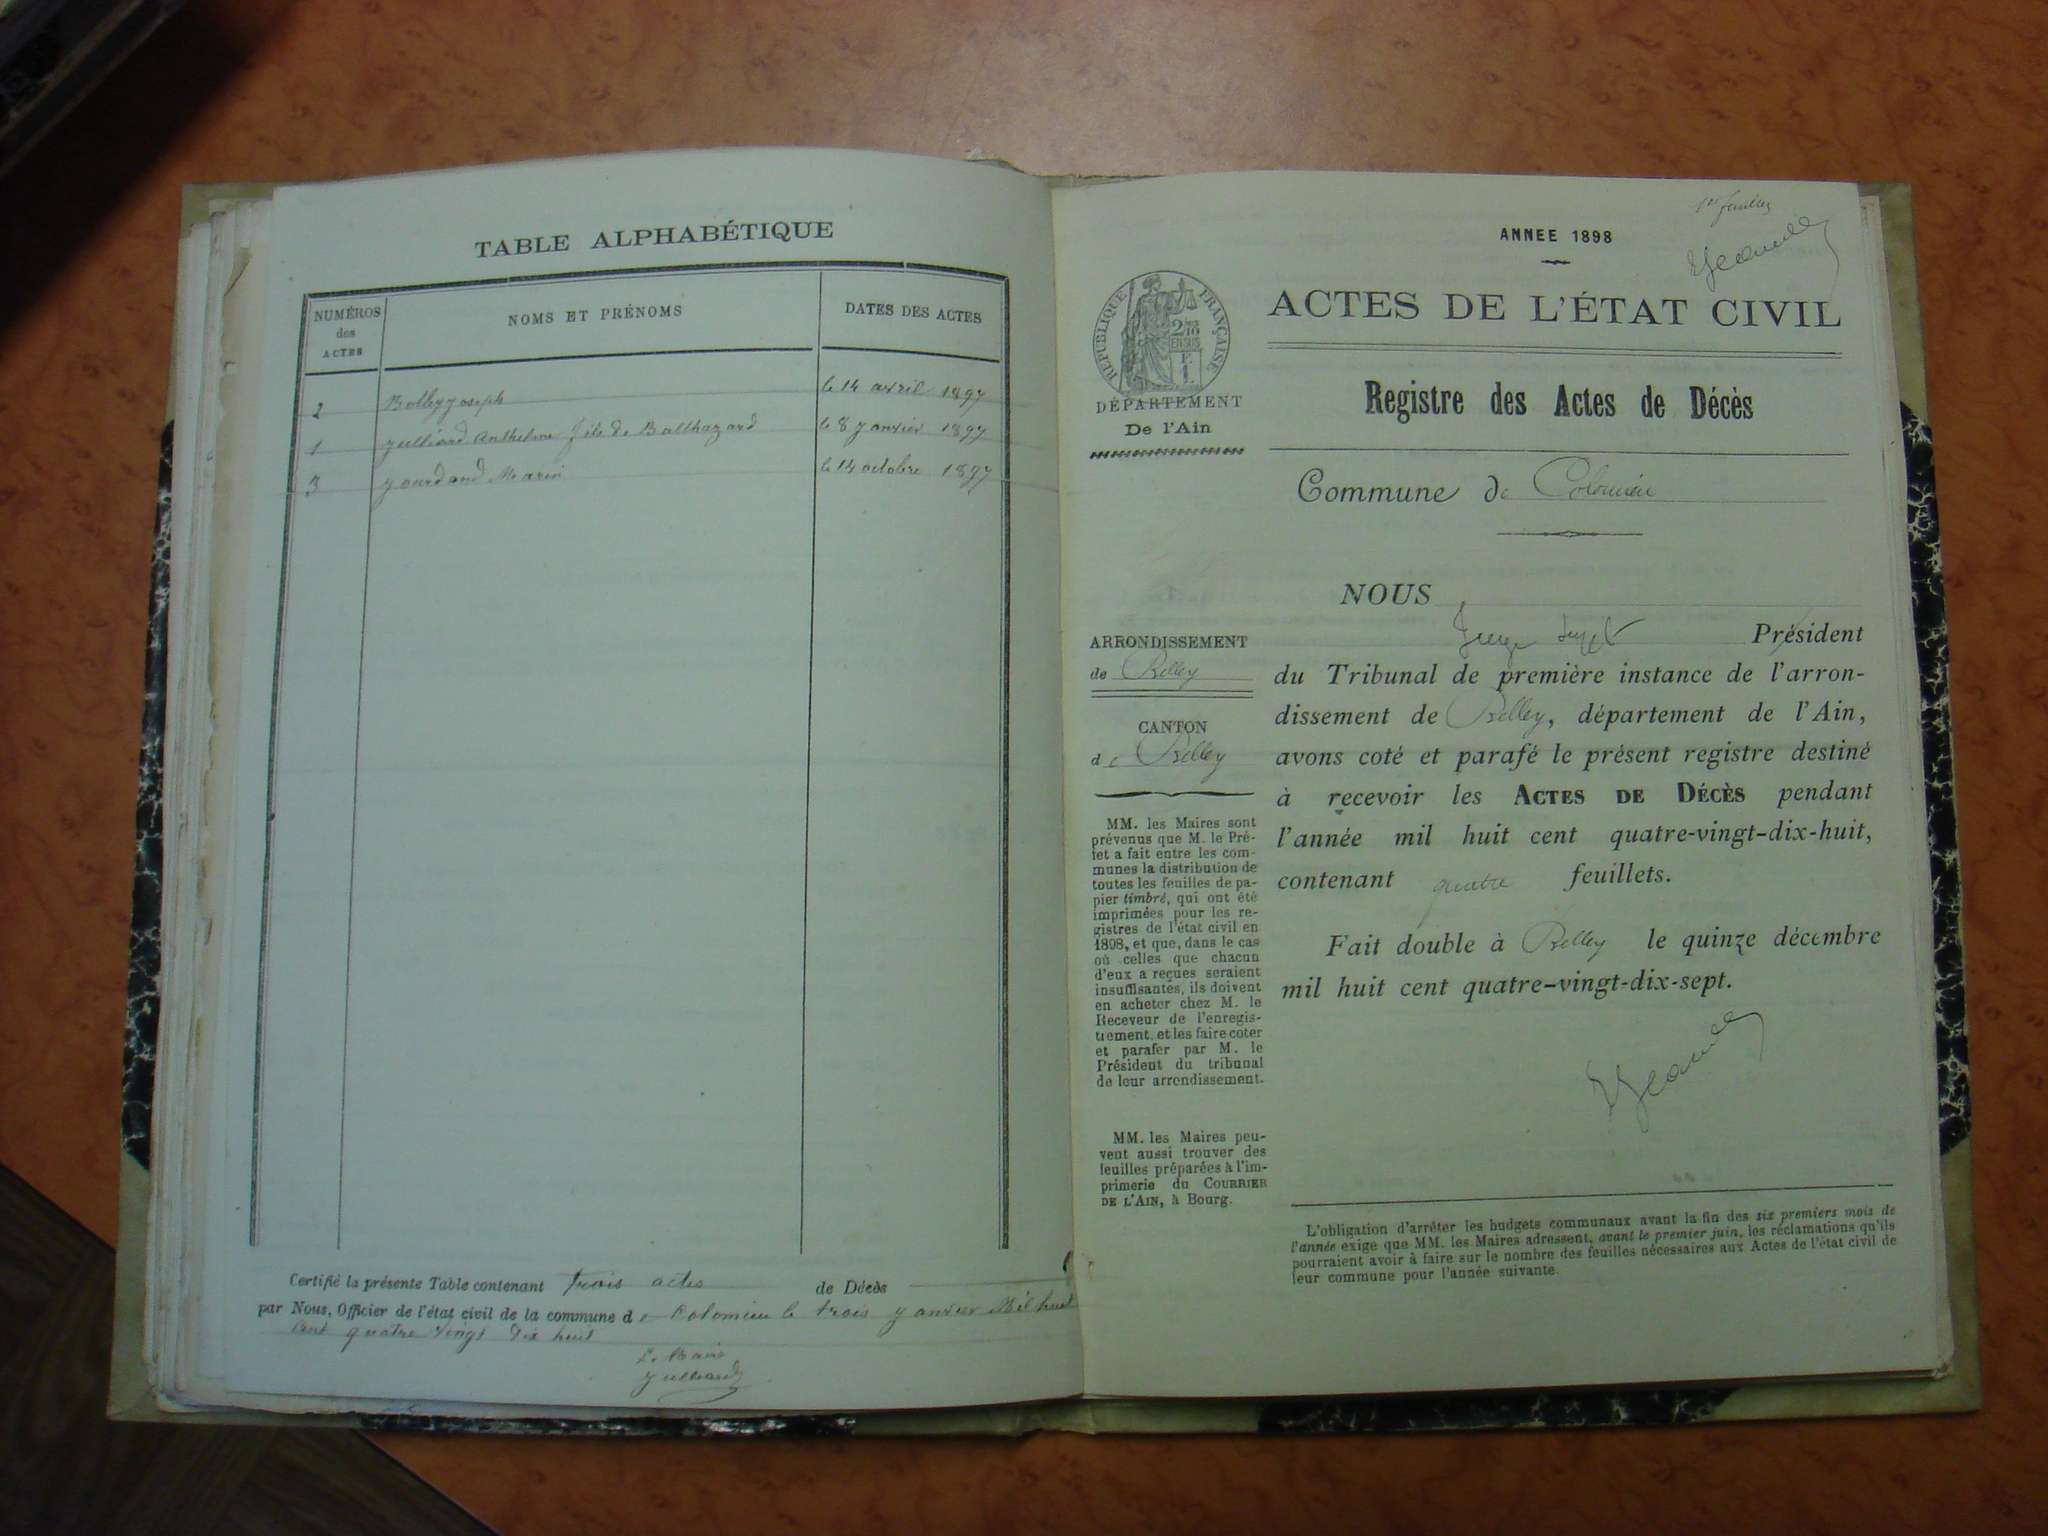 TABLE ALPHABÉTIQUE
NUMÉROS des ACTES
NOMS ET PRÉNOMS
DATES DES ACTES
2 Bolley Joseph le 14 avril 1897
1 Julliard Anthelme fils de Balthazard le 8 Janvier 1897
3 Jourdand Marin le 14 octobre 1897
Certifié la présente Table contenant trois actes de Décès
par Nous, Officier de l'état civil de la commune de Colomieu le trois Janvier Mil huit
cent quatre vingt dix huit
Le Maire
Julliard
1er feuillet
ANNEE 1898
ACTES DE L'ÉTAT CIVIL
RÉPUBLIQUE FRANÇAISE
2 10es EN SUS
DÉPARTEMENT
De l'Ain
Registre des Actes de Décès
Commune de Colomieu
ARRONDISSEMENT
de Belley
CANTON
de Belley
MM. les Maires sont
prévenus que M. le Pré-
fet a fait entre les com-
munes la distribution de
toutes les feuilles de pa-
pier timbré, qui ont été
imprimées pour les re-
gistres de l'état civil en
1898, et que, dans le cas
où celles que chacun
d'eux a reçues seraient
insuffisantes, ils doivent
en acheter chez M. le
Receveur de l'enregis-
trement, et les faire coter
et parafer par M. le
Président du tribunal
de leur arrondissement.
MM. les Maires peu-
vent aussi trouver des
feuilles préparées à l'im-
primerie du COURRIER
DE L'AIN, à Bourg.
NOUS
Juge suppt Président
du Tribunal de première instance de l'arron-
dissement de Belley, département de l'Ain,
avons coté et parafé le présent registre destiné
à recevoir les ACTES DE DÉCÈS pendant
l'année mil huit cent quatre-vingt-dix-huit,
contenant quatre feuillets.
Fait double à Belley le quinze décembre
mil huit cent quatre-vingt-dix-sept.
L'obligation d'arrêter les budgets communaux avant la fin des six premiers mois de
l'année exige que MM. les Maires adressent, avant le premier juin, les réclamations qu'ils
pourraient avoir à faire sur le nombre des feuilles nécessaires aux Actes de l'état civil de
leur commune pour l'année suivante.